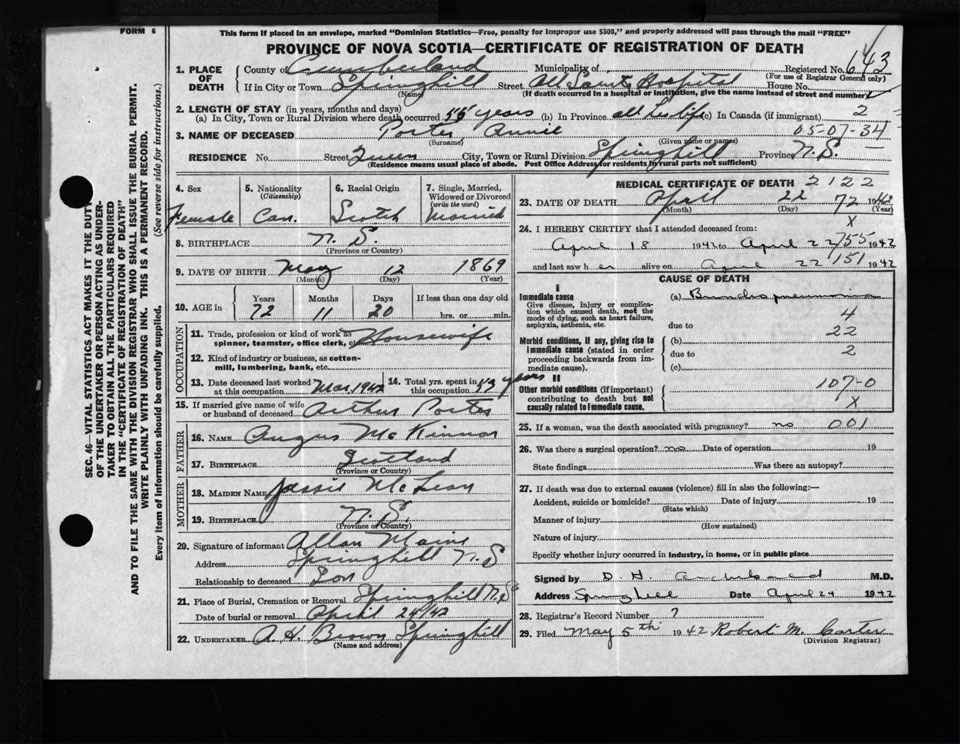 FORM 6
This form if placed in an envelope, marked "Dominion Statistics—Free, penalty for improper use $300," and properly addressed will pass through the mail "FREE"
PROVINCE OF NOVA SCOTIA—CERTIFICATE OF REGISTRATION OF DEATH
1. PLACE OF DEATH County of Cumberland Municipality of Registered No. 643
(For use of Registrar General only)
If in City or Town Springhill Street All Saints Hospital House No.
(Name) (If death occurred in a hospital or institution, give the name instead of street and number)
2. LENGTH OF STAY (in years, months and days) 2
(a) In City, Town or Rural Division where death occurred 55 years (b) In Province all her life (c) In Canada (if immigrant)
3. NAME OF DECEASED Porter Annie 05-07-34
(Surname) (Given name or names)
RESIDENCE No. Street Queen City, Town or Rural Division Springhill Province N.S.
(Residence means usual place of abode. Post Office Address for residents in rural parts not sufficient)
4. Sex Female
5. Nationality (Citizenship) Can.
6. Racial Origin Scotch
7. Single, Married, Widowed or Divorced (write the word) Married
8. BIRTHPLACE N.S.
(Province or Country)
9. DATE OF BIRTH May 12 1869
(Month) (Day) (Year)
10. AGE in Years Months Days If less than one day old
72 11 20 hrs. or min.
OCCUPATION
11. Trade, profession or kind of work as spinner, teamster, office clerk, etc. Housewife
12. Kind of industry or business, as cotton-mill, lumbering, bank, etc.
13. Date deceased last worked at this occupation Mar. 1942 14. Total yrs. spent in this occupation years
15. If married give name of wife or husband of deceased Arthur Porter
FATHER
16. NAME Angus McKinnon
17. BIRTHPLACE Scotland
(Province or Country)
MOTHER
18. MAIDEN NAME Jessie McLean
19. BIRTHPLACE N.S.
(Province or Country)
20. Signature of informant Allan
Address Springhill N.S
Relationship to deceased Son
21. Place of Burial, Cremation or Removal Springhill N.S
Date of burial or removal April 24/42
22. UNDERTAKER A.H. Brown Springhill
(Name and address)
MEDICAL CERTIFICATE OF DEATH 2122
23. DATE OF DEATH April 22 72 1942
(Month) (Day) (Year)
X
24. I HEREBY CERTIFY that I attended deceased from:
April 18 1942 to April 22 /55 1942
and last saw her alive on April 22 /51 1942
CAUSE OF DEATH
I
Immediate cause
Give disease, injury or complication which caused death, not the mode of dying, such as heart failure, asphyxia, asthenia, etc.
(a) Bronchopneumonia
4
due to
22
Morbid conditions, if any, giving rise to immediate cause (stated in order proceeding backwards from immediate cause).
(b)
due to 2
(c)
II
Other morbid conditions (if important) contributing to death but not causally related to immediate cause.
107-0
X
25. If a woman, was the death associated with pregnancy? no 001
26. Was there a surgical operation? no Date of operation 19
State findings Was there an autopsy?
27. If death was due to external causes (violence) fill in also the following:—
Accident, suicide or homicide? Date of injury 19
(State which)
Manner of injury
(How sustained)
Nature of injury
Specify whether injury occurred in industry, in home, or in public place
Signed by D. H. Archibald M.D.
Address Springhill Date April 24 1942
28. Registrar's Record Number ?
29. Filed May 5th 1942 Robert M. Carter
(Division Registrar)
SEC. 46—VITAL STATISTICS ACT MAKES IT THE DUTY
OF THE UNDERTAKER OR PERSON ACTING AS UNDER-
TAKER TO OBTAIN ALL THE PARTICULARS REQUIRED
IN THE "CERTIFICATE OF REGISTRATION OF DEATH"
AND TO FILE THE SAME WITH THE DIVISION REGISTRAR WHO SHALL ISSUE THE BURIAL PERMIT.
WRITE PLAINLY WITH UNFADING INK. THIS IS A PERMANENT RECORD.
Every item of information should be carefully supplied. (See reverse side for instructions.)